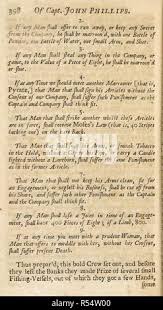 398 Of Capt. JOHN PHILLIPS.
2.
If any Man shall offer to run away, or keep any Secret
from the Company, he shall be marroon'd, with one Bottle of
Powder, one Bottle of Water, one small Arm, and Shot.
3.
If any Man shall steal any Thing in the Company, or
game, to the Value of a Piece of Eight, he shall be marroon'd
or shot.
4.
If at any Time we should meet another Marrooner (that is,
Pyrate,) that Man that shall sign his Articles without the
Consent of our Company, shall suffer such Punishment as the
Captain and Company shall think fit.
5.
That Man that shall strike another whilst these Articles
are in force, shall receive Moses's Law (that is, 40 Stripes
lacking one) on the bare Back.
6.
That Man that shall
smoak Tobacco
in the Hold, without
or carry a Candle
lighted without a Lanthorn, shall suffer the same Punishment
as in the former Article.
7.
That Man that shall not keep his Arms clean, fit for
an Engagement, or neglect his Business, shall be cut off from
his Share, and suffer such other Punishment as the Captain
and the Company shall think fit.
8.
If any Man shall lose a Joint in time of an Engage-
ment, shall have 400 Pieces of Eight; if a Limb, 800.
9.
If at any time you meet with a prudent Woman, that
Man that offers to meddle with her, without her Consent,
shall suffer present Death.
Thus prepar'd, this bold Crew set out, and before
they left the Banks they made Prize of several small
Fishing-Vessels, out of which they got a few Hands,
alamy
www.alamy.com - R54W00